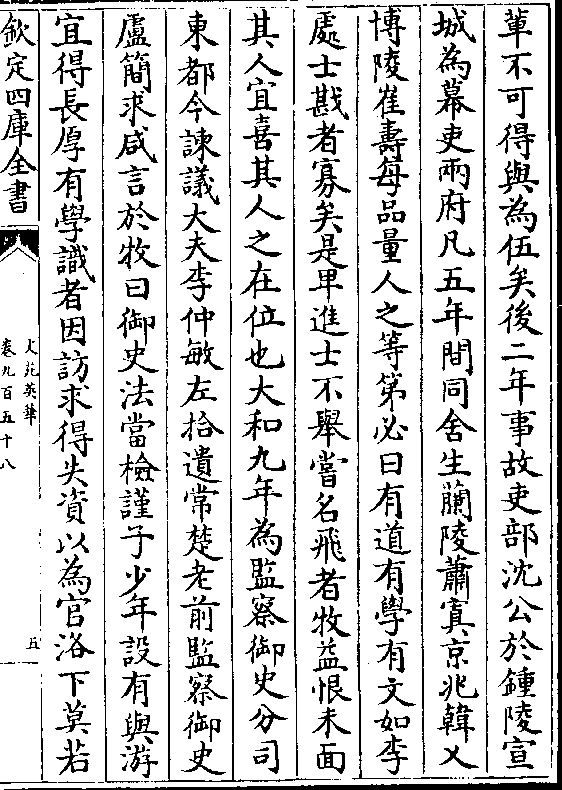 軰不可得與為伍矣後二年事故吏部沈公於鍾陵宣
城為幕吏兩府凡五年間同舍生蘭陵蕭寘京兆韓乂
博陵崔壽每品量人之等第必曰有道有學有文如李
處士戡者寡矣是卑進士不舉嘗名飛者牧益恨未面
其人宜喜其人之在位也大和九年為監察御史分司
東都今諫議大夫李仲敏左拾遺常楚老前監察御史
盧簡求咸言於牧曰御史法當檢謹子少年設有與游
宜得長厚有學識者因訪求得失資以為官洛下莫若
欽定四庫全書
文苑英華
卷九百五十八
五